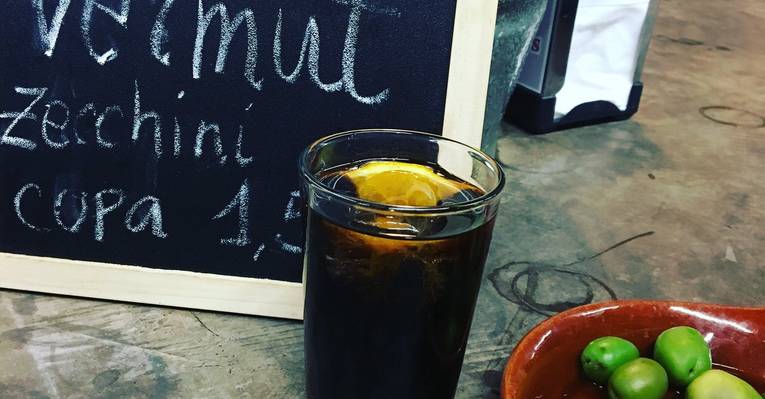 Vermut
Zecchini
copa 1,5